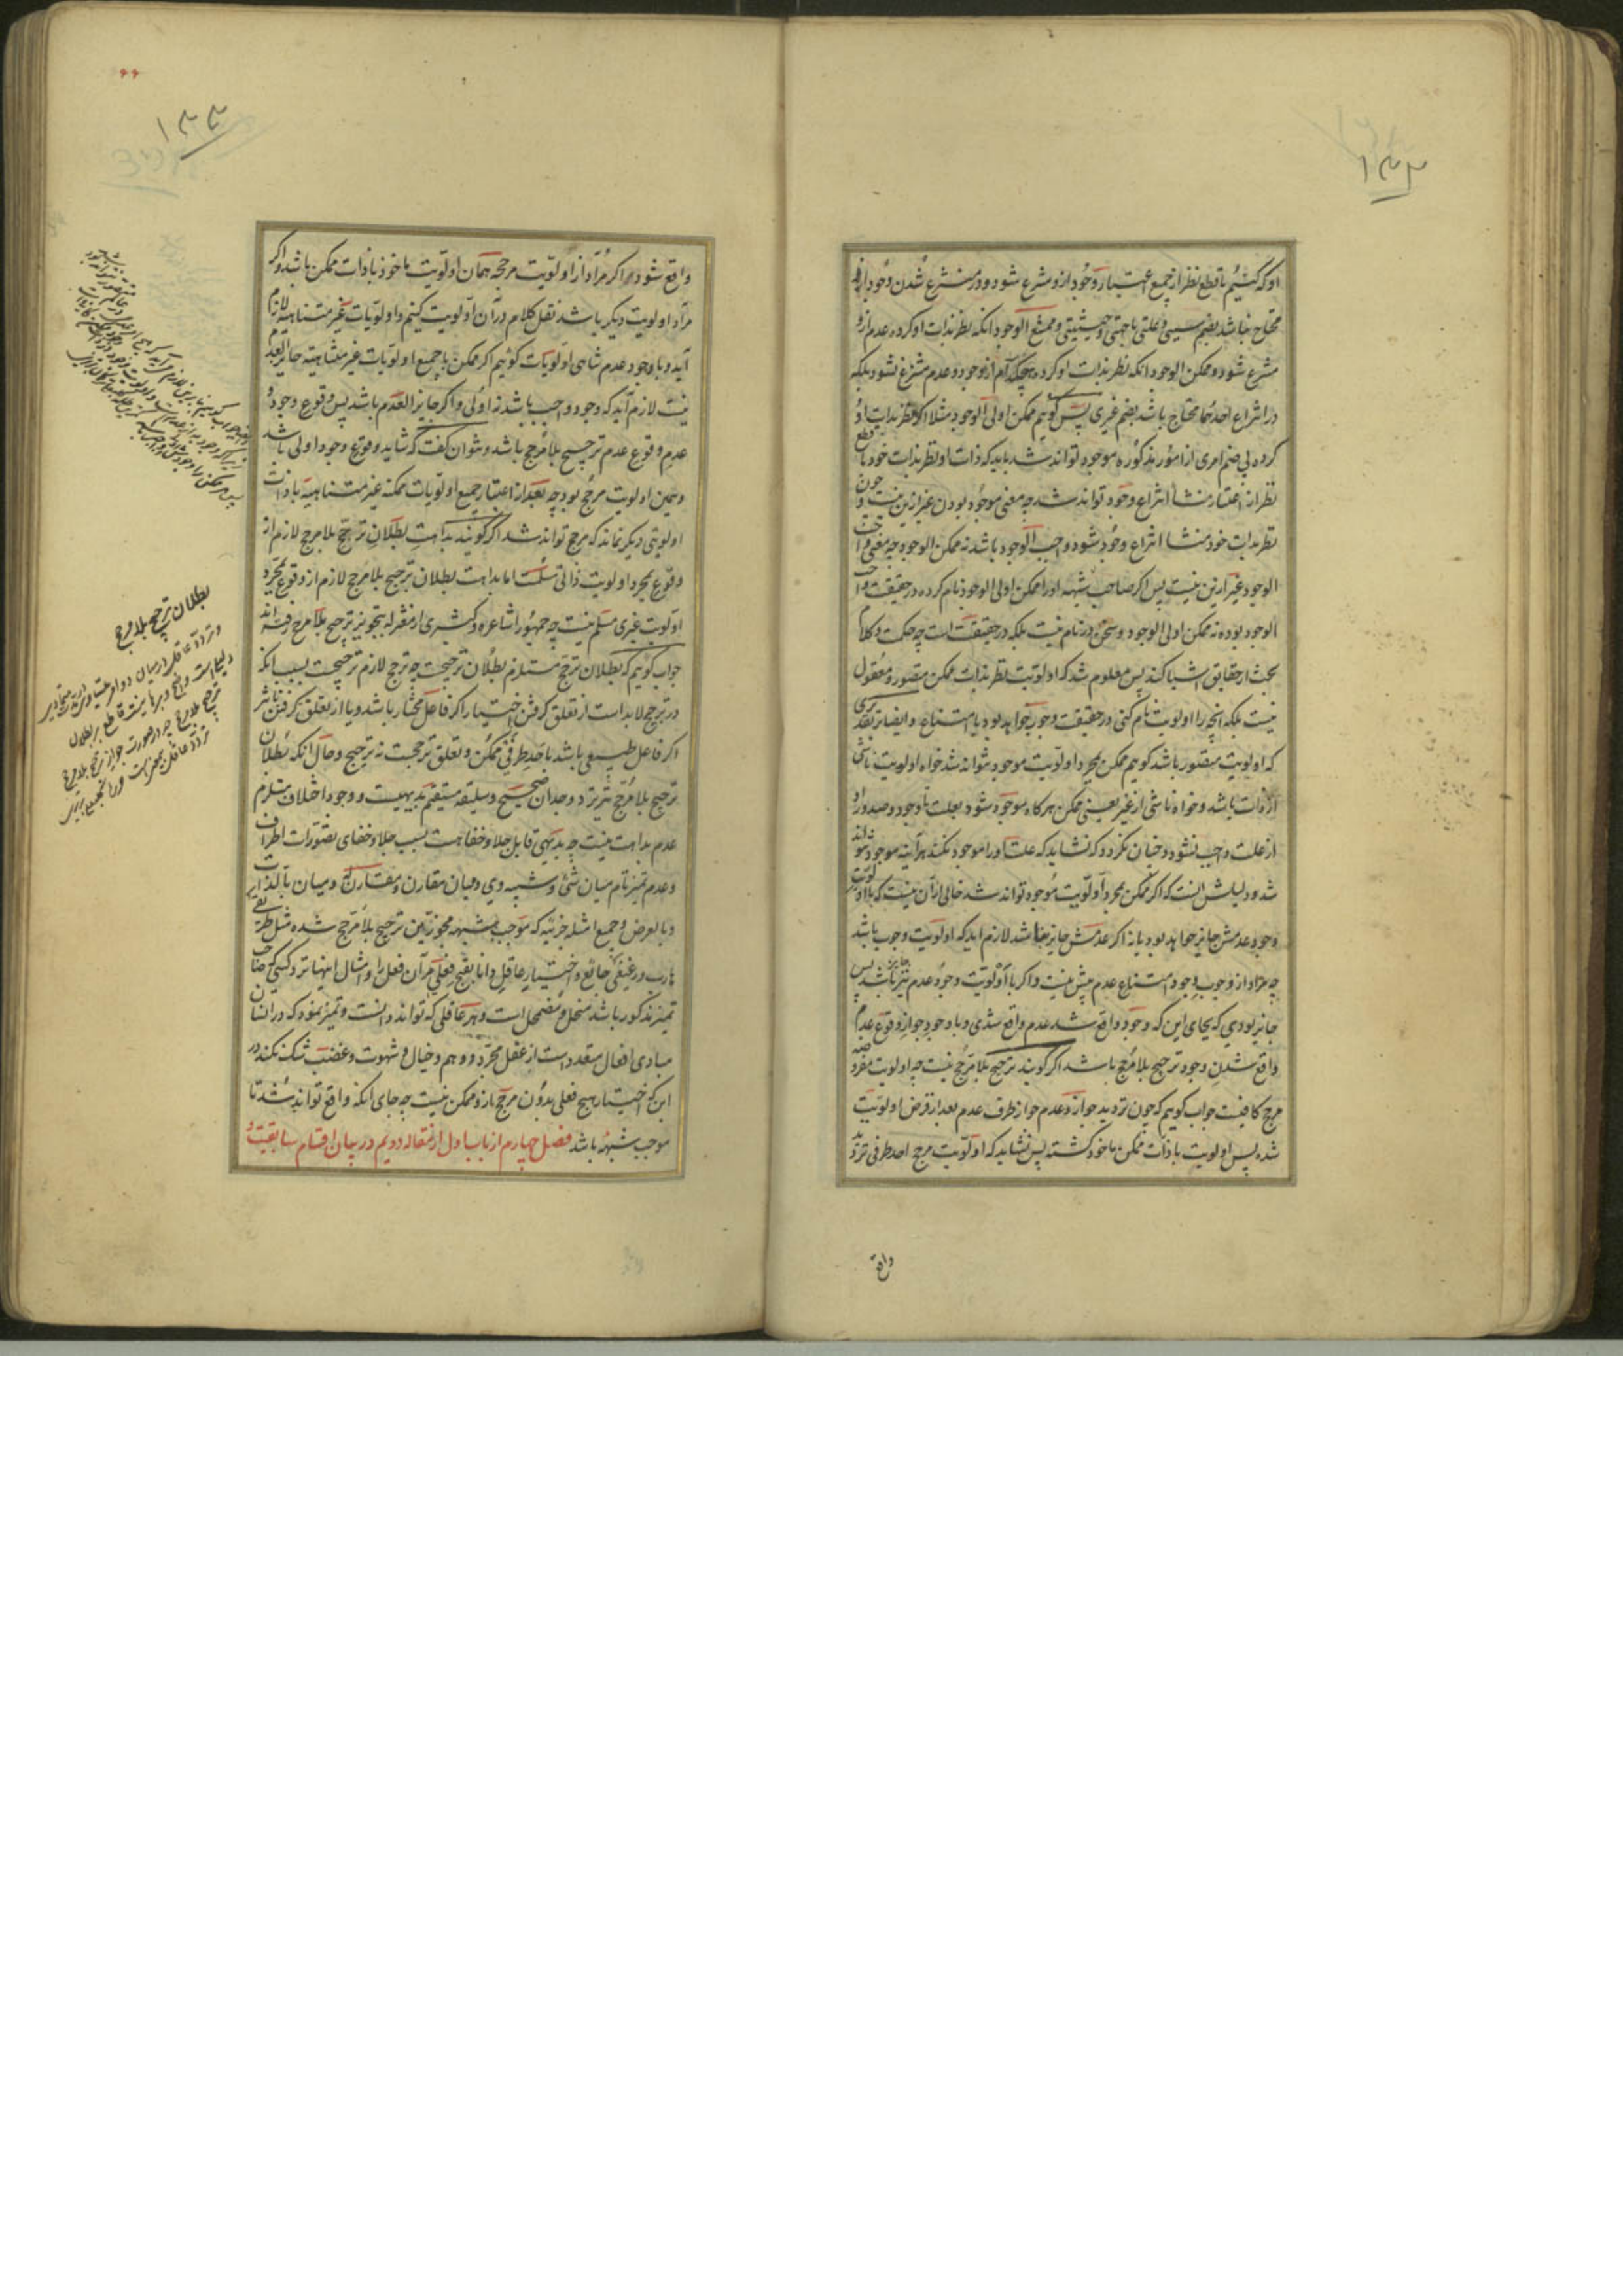 ۱۳۲
او کہ کنیم با قطع نظر از جمیع اعتبار وجود ازو منتزع شود و در منتزع شدن وجود ازو
محتاج نباشد بضم سببی و علتی یا جهتی و حیثیتی و ممتنع الوجود انکه نظر بذات او کرده عدم ازو
منتزع شود و ممکن الوجود انکه نظر بذات او کرده هیچکدام از وجود و عدم منتزع نشود بلکه
در انتزاع احدهما محتاج باشد بضم غیری پس گوییم ممکن اولی الوجود مثلا اگر نظر بذات او
کرده بی ضم امری از امور مذکوره موجود تواند شد باید که ذات او نظر بذات خود با قطع
نظر از اعتبار منشا انتزاع وجود تواند شد چه معنی موجود بودن غیر ازین نیست و چون
نظر بذات خود منشا انتزاع وجود شود واجب الوجود باشد نه ممکن الوجود چه معنی واجب
الوجود غیر ازین نیست پس اگر صاحب شبهه اورا ممکن اولی الوجود نام کرده در حقیقت واجب
الوجود بوده نه ممکن اولی الوجود و سخن در نام نیست بلکه در حقیقت است چه حکمت و کلام
بحث از حقایق اشیا کنند پس معلوم شد که اولویت نظر بذات ممکن متصور و معقول
نیست بلکه انچه را اولویت نام کنی در حقیقت وجوب خواهد بود یا امتناع و ایضا بر تقدیری
که اولویت متصور باشد گوییم ممکن بمجرد اولویت موجود نتواند شد خواه اولویت ناشی
از ذات باشد و خواه ناشی از غیر یعنی ممکن هر گاه موجود شود بعلت تا وجود و صدور او
از علت واجب نشود و چنان نگردد که نشاید که علت اورا موجود نکند هراینه موجود نتواند
شد و دلیلش انست که اگر ممکن بمجرد اولویت موجود تواند شد خالی از ان نیست که با اولویت
وجود عدمش جایز خواهد بود یا نه اگر عدمش جایز نباشد لازم اید که اولویت وجوب باشد
چه مراد از وجوب وجود امتناع عدم بیش نیست و اگر با اولویت وجود عدم نیز جایز باشد پس
جایز بودی که بجای این که وجود واقع شد عدم واقع شدی و با وجود جواز وقوع عدم
واقع شدن وجود ترجیح بلا مرجح باشد اگر گویند ترجیح بلا مرجح نیست چه اولویت مفروضه
مرجح کافیست جواب گوییم که چون تردید جواز و عدم جواز طرف عدم بعد از فرض اولویت
شده پس اولویت با ذات ممکن ماخوذ گشته پس نشاید که اولویت مرجح احد طرفی تردید
واقع
۶۶
۱۳۳
واقع شود چرا اگر مراد از اولویت مرجحه همان اولویت ماخوذ با ذات ممکن باشد و اگر
مراد اولویت دیگر باشد نقل کلام در ان اولویت کنیم و اولویات غیر متناهیه لازم
آید و با وجود عدم تناهی اولویات گوییم اگر ممکن با جمیع اولویات غیر متناهیه جایز العدم
نیست لازم آید که وجود واجب باشد نه اولی و اگر جایز العدم باشد پس وقوع وجود و
عدم وقوع عدم ترجیح بلا مرجح باشد و نتوان گفت که شاید وقوع وجود اولی باشد
و همین اولویت مرجح بود چه بعد از اعتبار جمیع اولویات ممکنه غیر متناهیه با ذات
اولویتی دیگر نماند که مرجح تواند شد اگر گویند بداهت بطلان ترجح بلا مرجح لازم از
وقوع بمجرد اولویت ذاتی مسلمست اما بداهت بطلان ترجیح بلا مرجح لازم از وقوع بمجرد
اولویت غیری مسلم نیست چه جمهور اشاعره و کثیری از معتزله بتجویز ترجیح بلا مرجح رفته اند
جواب گوییم که بطلان ترجح مستلزم بطلان ترجیحست چه ترجح لازم ترجیحست بسبب انکه
در ترجیح لابد است از تعلق گرفتن اختیار اگر فاعل مختار باشد و یا از تعلق گرفتن تاثیر
اگر فاعل طبیعی باشد باحد طرفی ممکن و تعلق ترجحست نه ترجیح و حال انکه بطلان
ترجیح بلا مرجح نیز نزد وجدان صحیح و سلیقه مستقیم بدیهیست و وجود اختلاف مستلزم
عدم بداهت نیست چه بدیهی قابل جلا و خفا هست بسبب جلا و خفای تصورات اطراف
و عدم تمیز تام میان شئ و شبیه وی و میان مقارن و مقارن و میان بالذات
و بالعرض و جمیع امثله جزئیه که موجب شبهه مجوزین ترجیح بلا مرجح شده مثل طریقی
هارب و رغیفی جائع و اختیار عاقل دانا بقبح فعلی مر آن فعل را و امثال اینها نزد کسی که صاحب
تمیز مذکور باشد منحل و مضمحل است و هر عاقلی که تواند دانست و تمیز نمود که در انسان
مبادی افعال متعدد است از عقل مجرد و وهم و خیال و شهوت و غضب شک نکند در
این که اختیار هیچ فعلی بدون مرجح بارز و ممکن نیست چه جای انکه واقع تواند شد تا
موجب شبهه باشد فصل چهارم از باب اول از مقاله دویم در بیان اقسام سابقیت و
بطلان ترجیح بلا مرجح